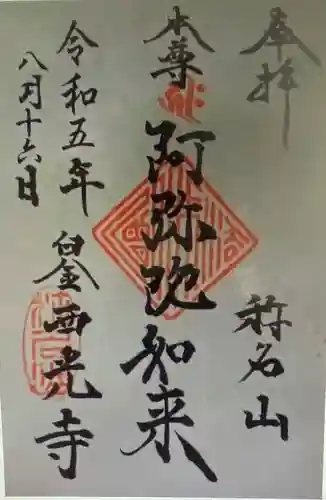 奉拝
称名山
本尊
阿弥陀如来
令和五年
八月十六日
白金 西光寺